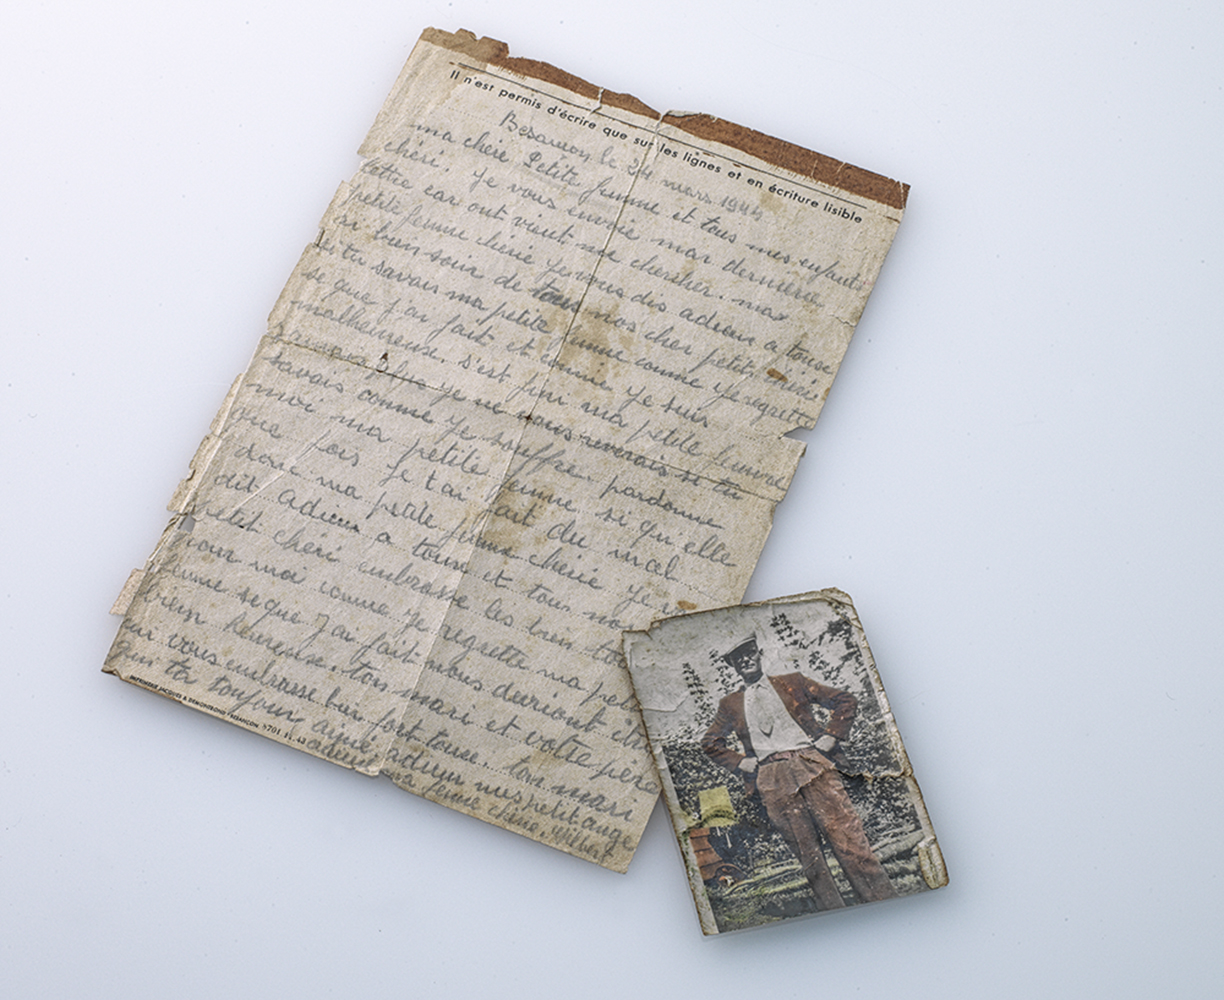 Il n'est permis d'écrire que sur les lignes et en écriture lisible
Besançon le 24 mars 1944
ma chère Petite femme et tous mes enfants
chéri. Je vous envoie mar dernière
lettre car ont vient me chercher. mas
petite femme chérie je vous dis adieu a touse
si tu savais ma petite femme comme je regrette
se que j'ai fait et comme je suis
malheureuse. s'est fini ma petite femme
je ne vous reverais si tu
savais comme je souffre. pardonne
moi ma petite femme si qu'elle
que fois je t'ai fait du mal
donc ma petite femme chérie je
dit adieu a touse et tous
petit chéri embrasse les bien
pour moi comme je regrette ma
femme se que j'ai fait nous deuriont
bien heureuse. ton mari et votre père
qui vous embrasse bien fort touse. ton mari
qui ta toujour aimé adieu mes petit ange
adieu ma femme chérie.
IMPRIMERIE JACQUES & DEMONTROND - BESANÇON